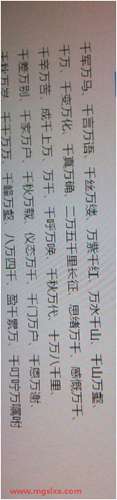 千军万马、千言万语、千丝万缕、万紫千红、万水千山、千山万壑、
千万、千变万化、千真万确、二万五千里长征、思绪万千、感慨万千、
千辛万苦、成千上万、万千、千呼万唤、千秋万代、十万八千里、
千差万别、千家万户、千秋万载、仪态万千、千门万户、千恩万谢、
千秋万岁、千千万万、万壑、八万四千、盈千累万、千叮咛万嘱咐
www.mgslxs.com